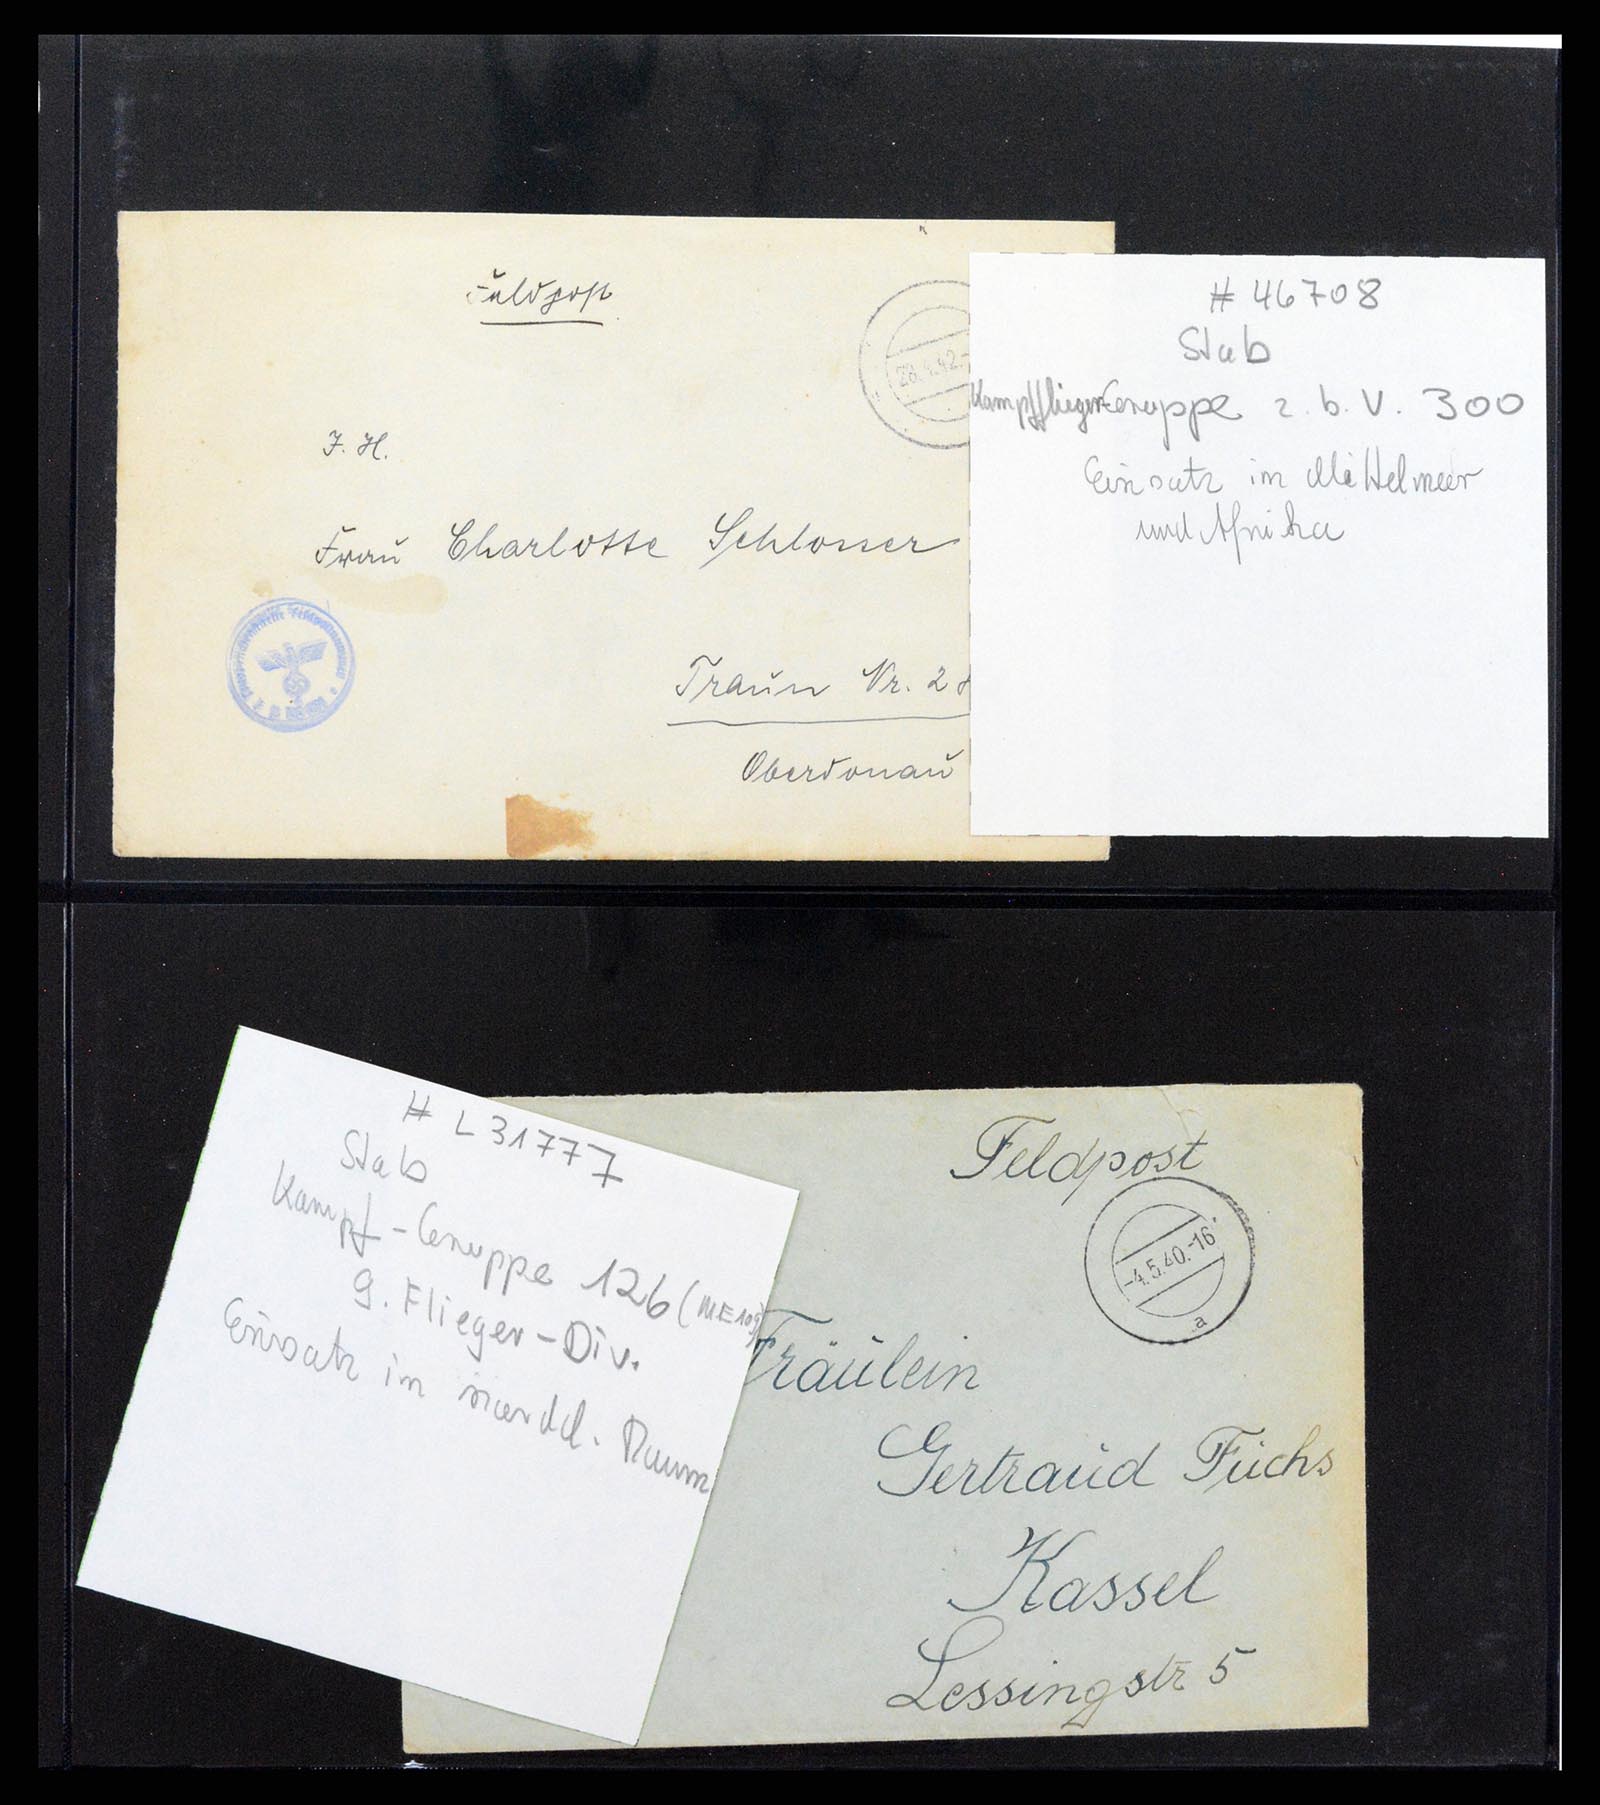 Feldpost
28.4.42.-
J. H.
Frau Charlotte Schlosser
Traun Nr. 28
Oberdonau
# 46708
Stab
Kampfflieger-Gruppe z. b. V. 300
Einsatz im Mittelmeer
und Afrika
# L 31777
Stab
Kampf-Gruppe 126 (ME109)
9. Flieger-Div.
Einsatz im nordd. Raum
Feldpost
-4.5.40.-16
a
Fräulein
Gertraud Fuchs
Kassel
Lessingstr 5